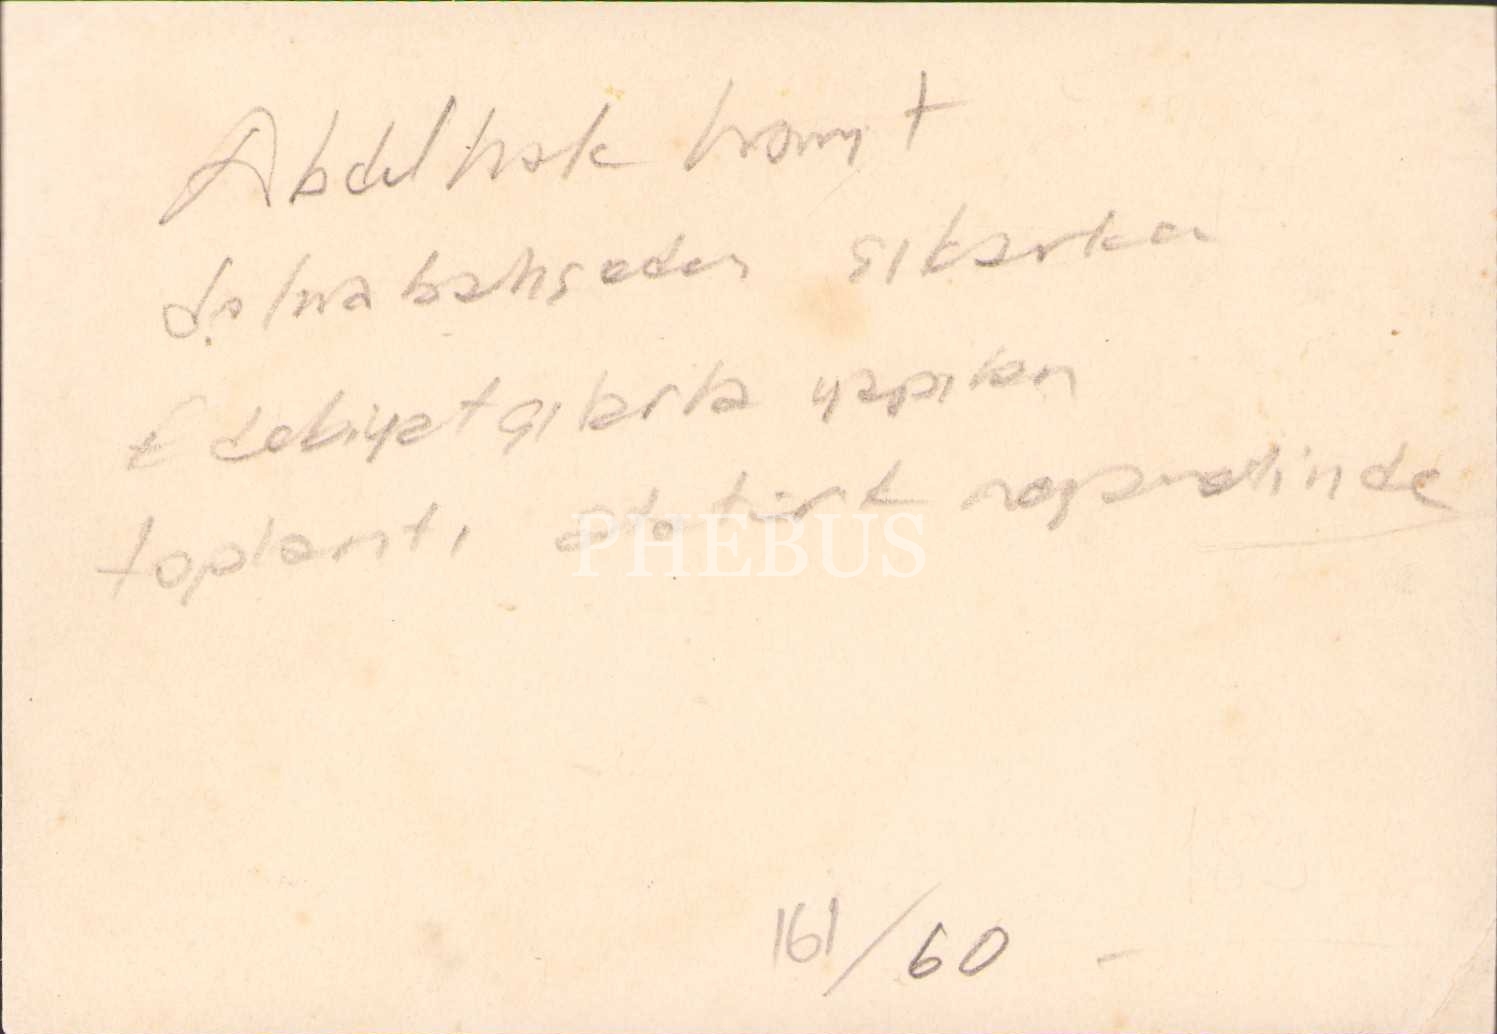 Abdelhak hamit
dolmabahçeden çıkarken
Edebiyatçılarla yapılan
toplantı atatürk nezaretinde
PHEBUS
161/60 -